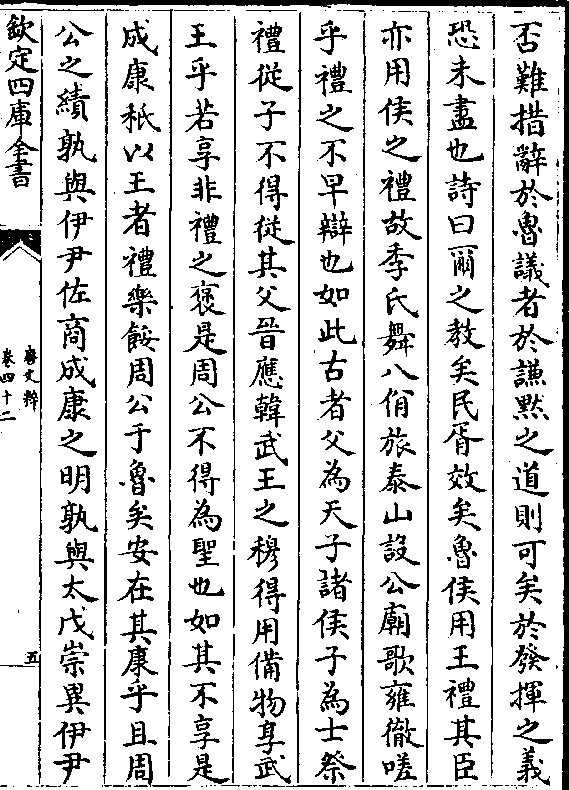 否難措辭於魯議者於謙黙之道則可矣於發揮之義
恐未盡也詩曰爾之教矣民胥效矣魯侯用王禮其臣
亦用侯之禮故季氏舞八佾旅泰山設公廟歌雍徹嗟
乎禮之不早辯也如此古者父為天子諸侯子為士祭
禮從子不得從其父晉應韓武王之穆得用備物享武
王乎若享非禮之褒是周公不得為聖也如其不享是
成康秖以王者禮樂餒周公于魯矣安在其康乎且周
公之績孰與伊尹佐商成康之明孰與太戊崇異伊尹
欽定四庫全書
唐文粹
卷四十二
五